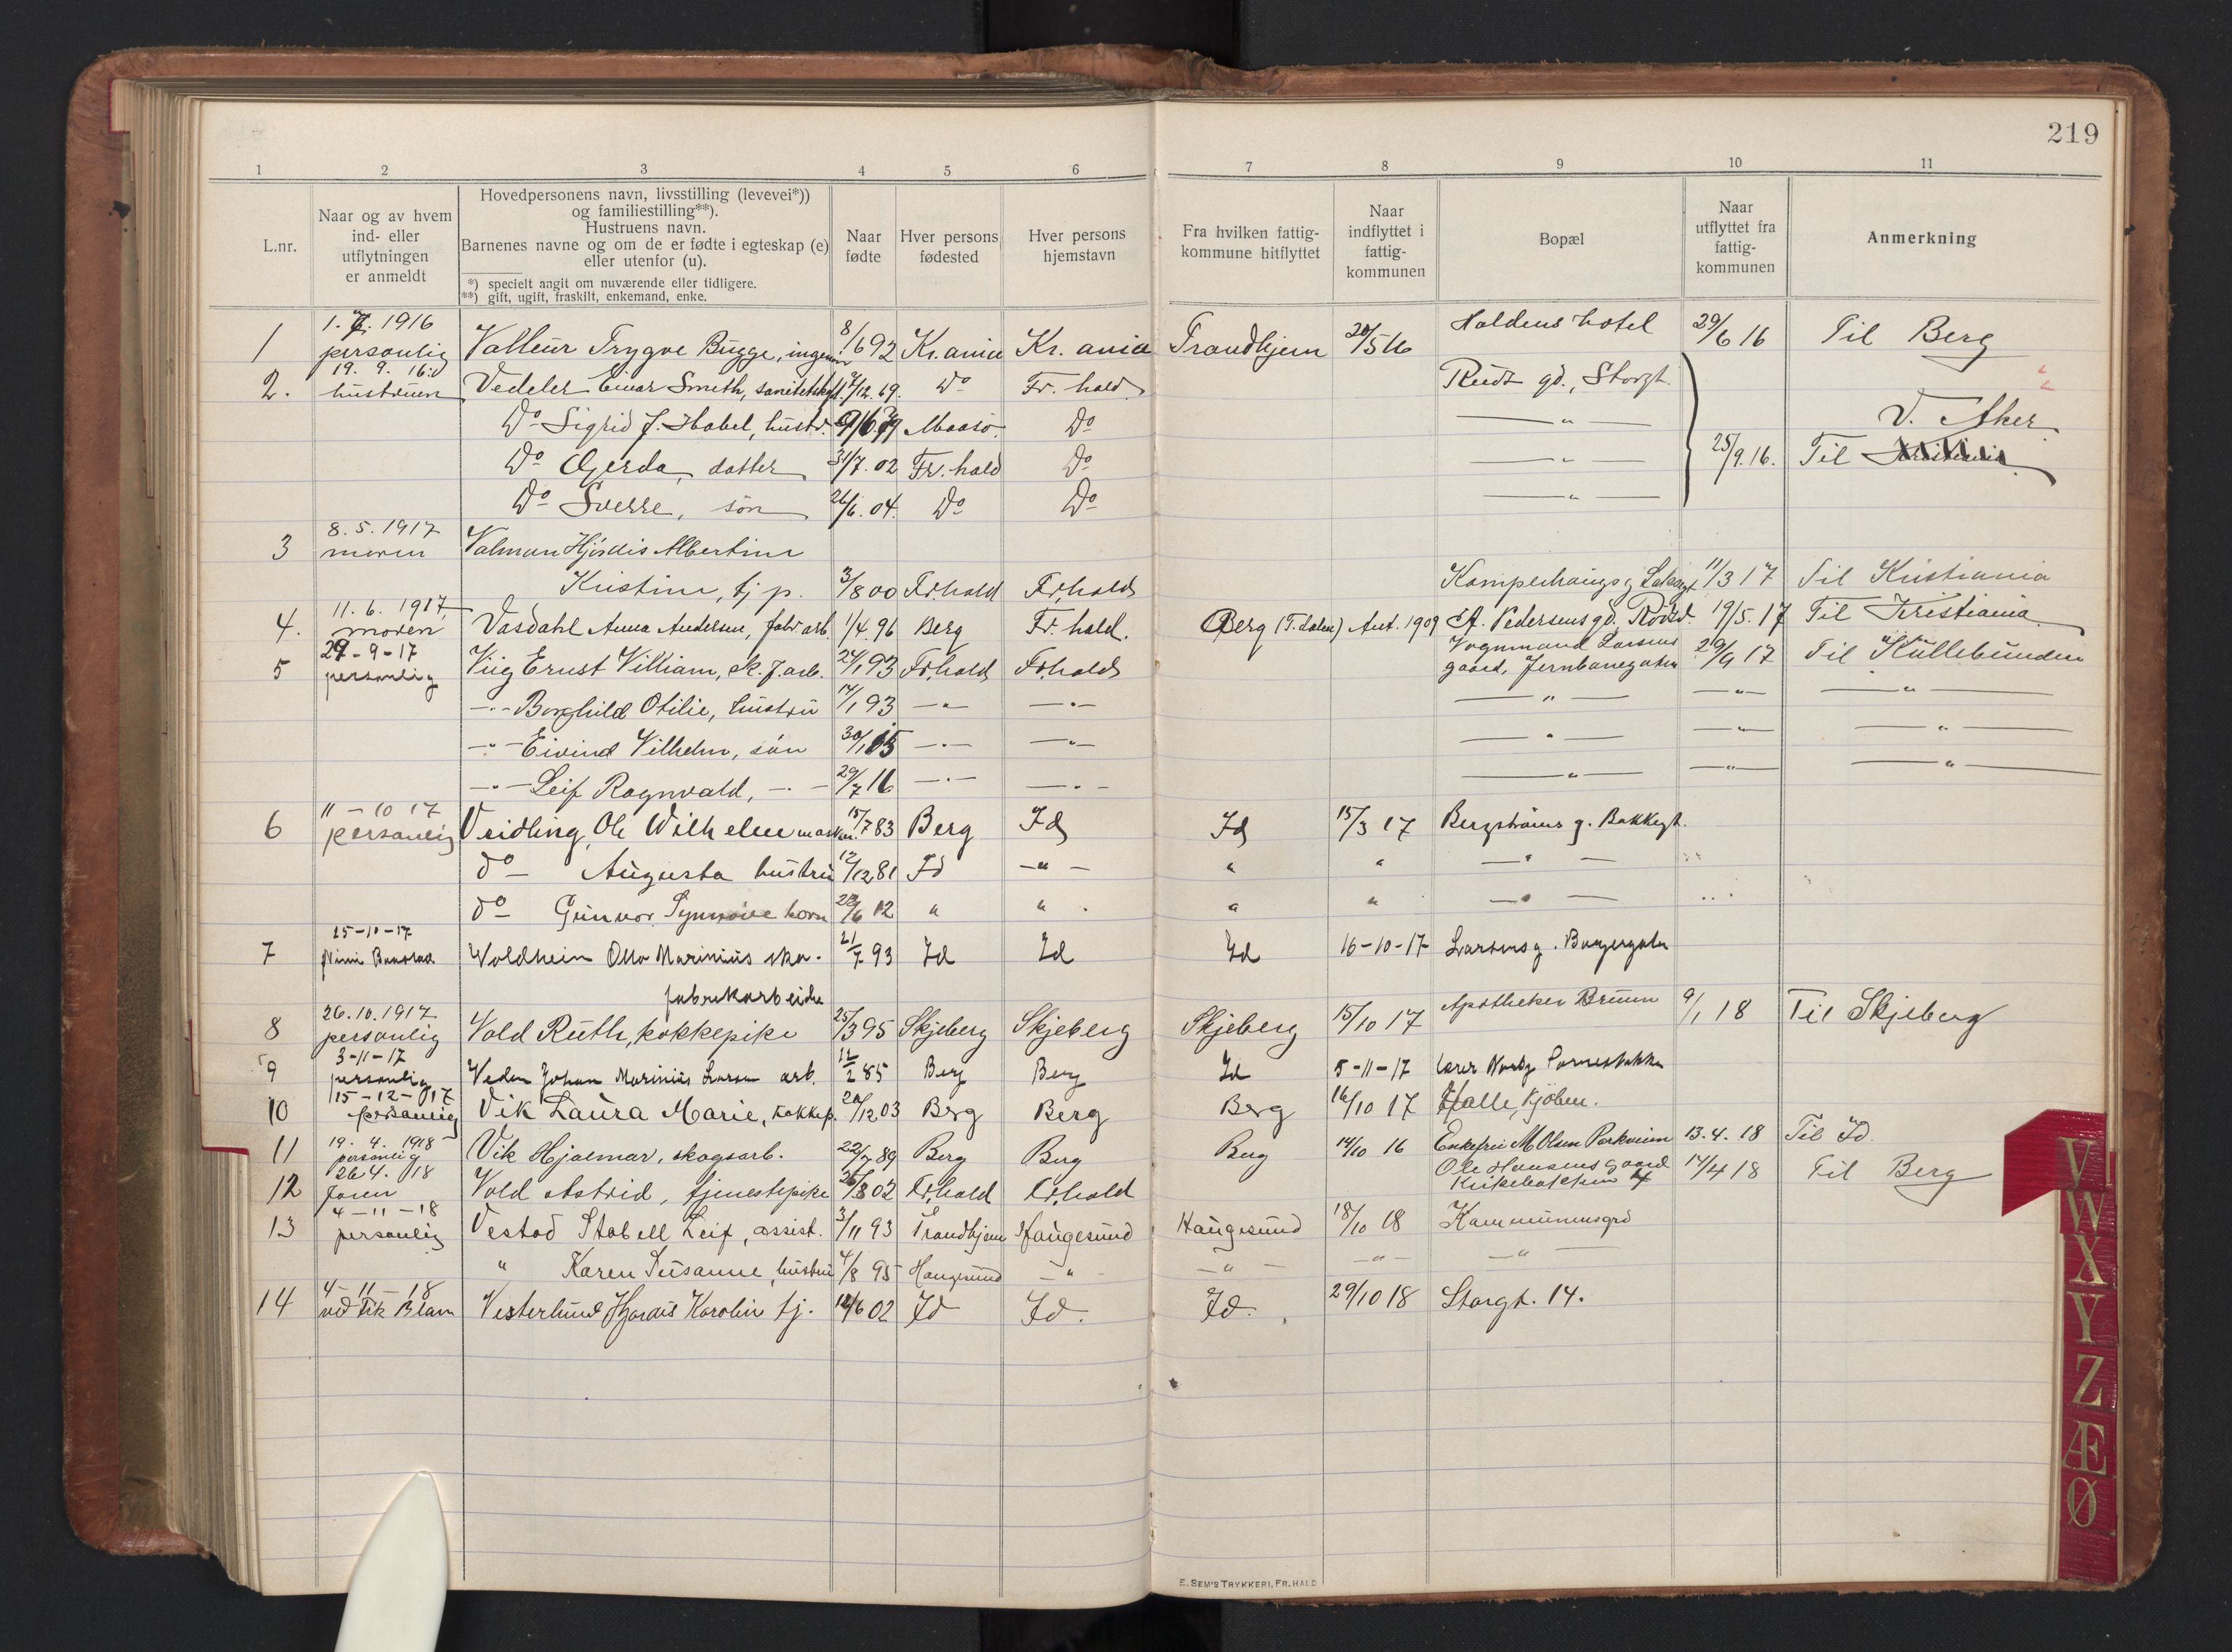 219
1 2 3 4 5 6 7 8 9 10 11
L.nr.
Naar og av hvem
ind- eller
utflytningen
er anmeldt
Hovedpersonens navn, livsstilling (levevei*))
og familiestilling**).
Hustruens navn.
Barnenes navne og om de er fødte i egteskap (e)
eller utenfor (u).
*) specielt angit om nuværende eller tidligere.
**) gift, ugift, fraskilt, enkemand, enke.
Naar
fødte
Hver persons
fødested
Hver persons
hjemstavn
Fra hvilken fattig-
kommune hitflyttet
Naar
indflyttet i
fattig-
kommunen
Bopæl
Naar
utflyttet fra
fattig-
kommunen
Anmerkning
1. 7. 1916
1 personlig Valleur Trygve Bugge, ingeniør 8/6 92 Kr.ania Kr. ania Trondhjem 20/5 16 Haldens hotel 29/6 16 Til Berg
19. 9. 16
2. hustruen Vedeler Einar Smith, /12. 69. Do Fr. hald Ruds gd., Storgt.
Do Sigrid J. Habel, hustr. Maasø. Do —"— V. Aker
Do Gjerda, datter 31/7. 02 Fr. hald Do —"— 25/9. 16. Til Kristiania
Do Sverre, søn 26/6. 04. Do Do —"—
8. 5. 1917
3 moren Valman Hjørdis Albertine
Kristine, tj. p. 3/8 00 Fr.hald Fr.hald 11/3 17 Til Kristiania
11. 6. 1917
4. moren Vasdahl Anna Andersen, fabr. arb. 1/4. 96 Berg Fr. hald. Berg (T.dalen) Aut. 1909 A. Pedersens gd. Rødsb. 19/5. 17 Til Kristiania
29-9-17 Vognmand Larsens
5 personlig Viig Ernst William, sk. f. arb. 24/1 93 Fr.hald Fr.hald gaard, Jernbanegaten 29/9 17 Til "Kullebunden"
—"— Borghild Otilie, hustru 14/1 93 —"— —"— —"— —"— —"—
—"— Eivind Vilhelm, søn 30/1 15 —"— —"— —"— —"— —"—
—"— Leif Ragnvald, —"— 29/7 16 —"— —"— —"— —"— —"—
11-10 17
6 personlig Vridling, Ole Wilhelm maskin. 15/7 83 Berg Id Id 15/3 17 Bergstrøms g. Bakkegt.
do — Augusta hustru 12/12 81 Id —"— " " —"—
do — Gunvor Synnøve barn 28/6 12 " " " " —"—
25-10-17
7 Woldhein Otto Marinius sko- 21/7 93 Id Id Id 16-10-17 Larsens g. Borgergaten
fabrikarbeider
26.10.1917
8 personlig Vold Ruth, kokkepike 25/3 95 Skjeberg Skjeberg Skjeberg 15/10 17 Apotheker Bruun 9/1 18 Til Skjeberg
3-11-17
9 personlig Veden Johan Marinius Larsen arb. 12/2 85 Berg Berg Id 5-11-17
15-12-1917
10 personlig Vik Laura Marie, kokkep. 20/12 03 Berg Berg Berg 16/10 17 Halle, Kjøbm.
19. 4. 1918
11 personlig Vik Hjalmar, skogsarb. 22/7 89 Berg Berg Berg 14/10 16 Enkefru M Olsen Parkveien 13.4.18 Til Id.
26 4. 18 Ole Hansens gaard
12 Faren Vold Astrid, tjenestepike 26/8 02 Fr.hald Fr.hald Kirkebakken 4 14/4 18 Til Berg
4-11-18
13 personlig Vestad Stabell Leif, assist. 3/11 93 Trondhjem Haugesund Haugesund 18/10 18 Kommunensgrd
" Karen Susanne, hustru 4/8 95 Haugesund —"— —"— —"— —"—
4-11-18
14 Vesterlund Hjørdis Karolin tj. 12/6 02 Id Id. Id. 29/10 18 Storgt. 14.
E. SEM'S TRYKKERI, FR.HALD
V
W
X
Y
Z
Æ
Ø